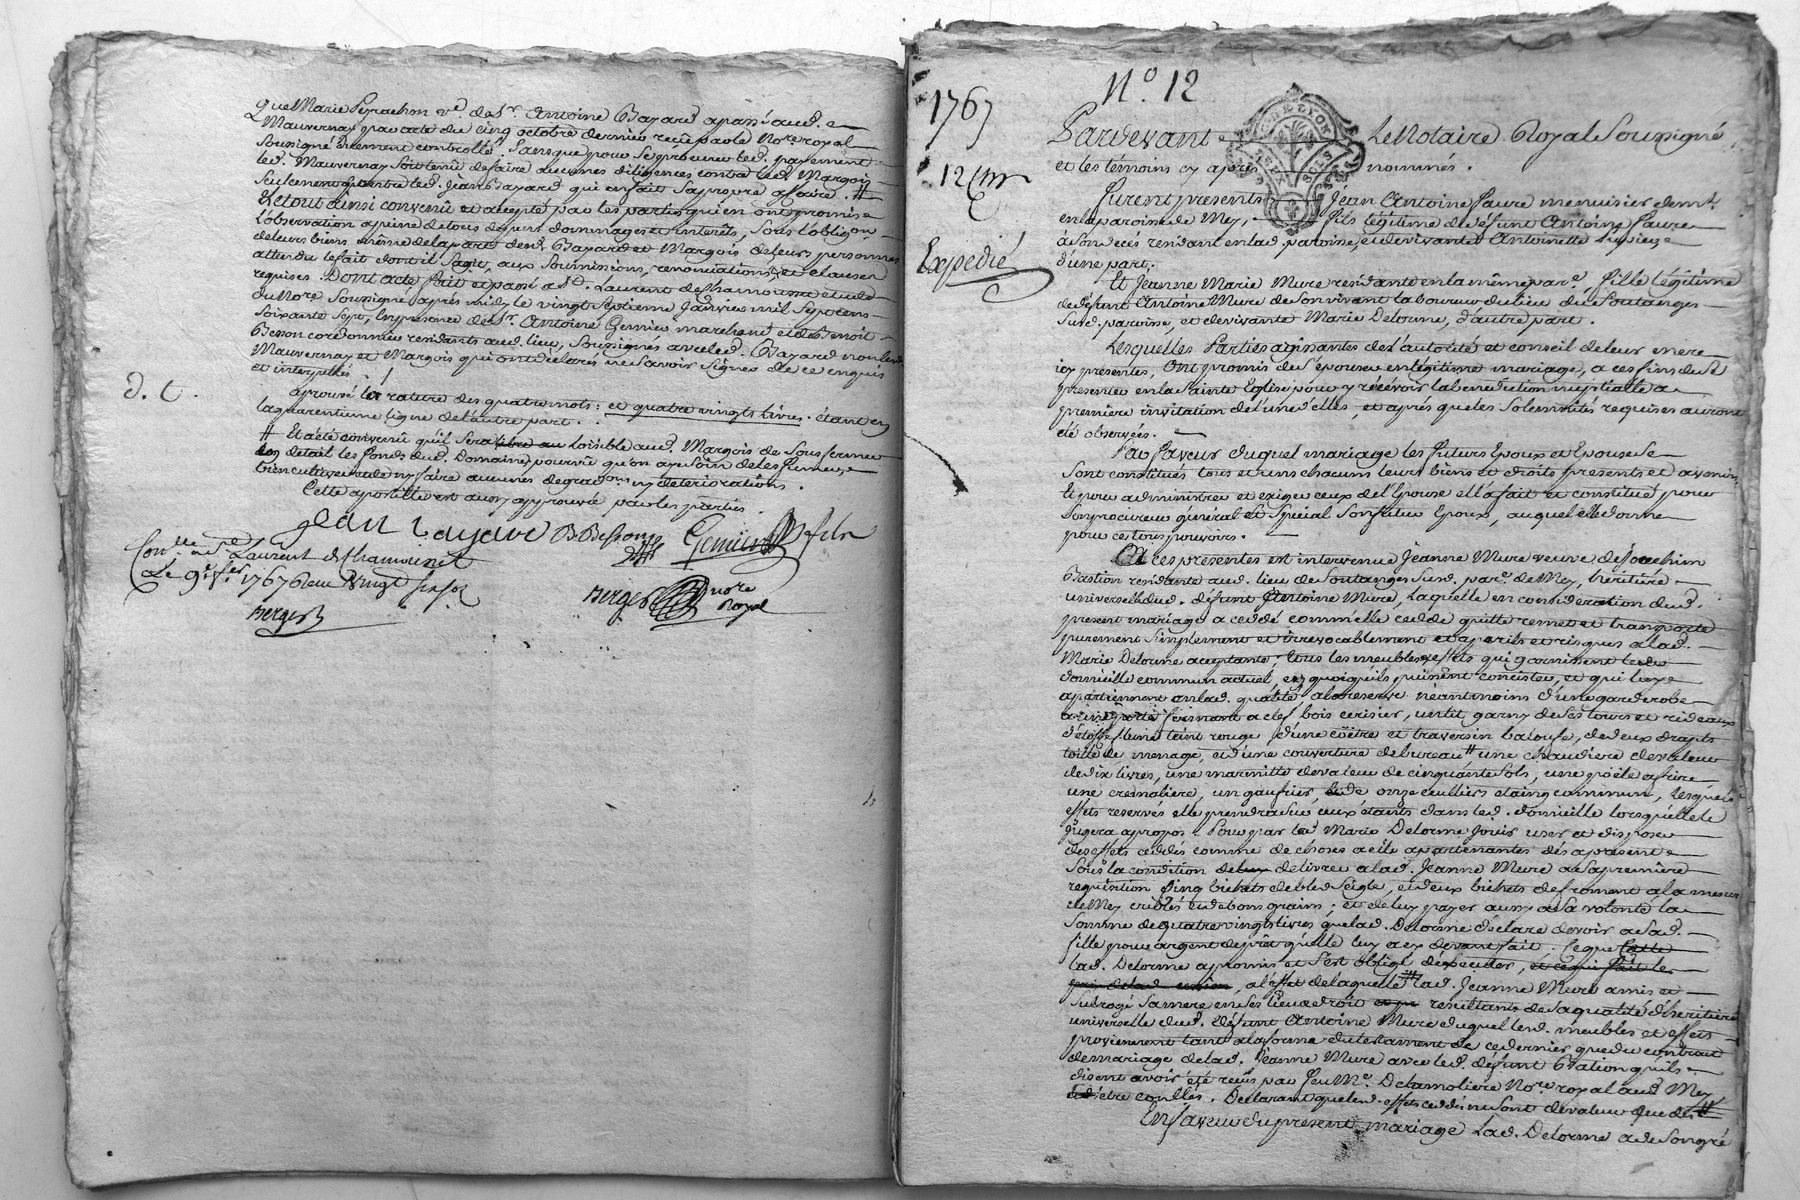 que Marie Peyrachon v.e de Sr. Antoine Bayard a passé aud.
Mauvernay par acte du cinq octobre dernier reçu par le Nore. royal
soussigné duement controllé, sans que pour se procurer led. payement
led. Mauvernay soit tenu de faire aucunes diligences contre led. Margois
seulement contre led. Jean Bayard qui en fait sa propre affaire. #
Et tout ainsi convenu et accepté par les parties qui en ont promis
l'observation a peine de tous depens dommages et interêts, sous l'obligon.
de leurs biens même de la part desd. Bayard et Margois de leurs personnes
attendu le fait dont il s'agit, aux soumissions, renonciations, et clauses
requises. Dont acte fait et passé a St. Laurent de Chamousset etude
du Nore. soussigné après midy le vingt septieme Janvier mil sept cens
soixante sept, en presence de Sr. Antoine Gemier marchand et de Benoit
Besson cordonnier residants aud. lieu, soussignés avec led. Bayard non lesd.
Mauvernay et Margois qui ont declarés ne savoir signer de ce enquis
et interpellés
aprouvé la rature des quatre mots: et quatre vingts livres. étant en
la quarentieme ligne de l'autre part.
# Et a été convenu qu'il sera libre au loisible aud. Margois de sous fermer
en detail les fonds dud. Domaine pourvû qu'on aye soin de les
bien cultiver et de n'y faire aucunes degraaons. ny deteriorations.
Cette apostille est aussy approuvée par les parties.
d. C.
jean bayard B Besson Gemier fils
Conllé. a St. Laurent de Chamousset
Le 9e. fer. 1767 Reçu Vingt six sols
Berger
Berger nore Royal
N.o 12
1767
12 Janr
Expedié
Pardevant Le Notaire Royal Soussigné
et les témoins cy après nommés.
Furent presents Jean Antoine Faure menuisier demt.
en la paroisse de Mey, fils légitime de défunt Antoine Faure
a son decès residant en lad. paroisse, et de vivante Antoinette
d'une part.
Et Jeanne Marie Mure residante en la même parse. fille légitime
de défunt Antoine Mure de son vivant laboureur du lieu du Soutanges
susd. paroisse, et de vivante Marie Delorme, d'autre part.
Lesquelles Parties agissantes de l'autorité et conseil de leur mere
icy presentes, Ont promis de s'épouser en légitime mariage, a ces fins de se
presenter en la Sainte Eglise pour y récévoir la benediction nuptialle a
premiere invitation de l'une d'elles, et après que les solemnités requises auront
été observées.
En Faveur duquel mariage les Futurs Epoux et Epouse se
sont constitués tous et uns chacuns leurs biens et droits presents et avenir.
Et pour administrer et exiger ceux de l'Epouse ella fait et constitué pour
son procureur général et spécial son futur Epoux, auquel elle donne
pour ce tous pouvoirs.
A ces presentes est intervenue Jeanne Mure veuve de Joachim
Bastion residante aud. lieu de Soutanges susd. parse. de Mey, héritiere
universelle dud. défunt Antoine Mure, laquelle en consideration dud.
present mariage a cedé comm'elle cedde quitte remet et transporte
purement simplement et irrevocablement et a perils et risques a lad.
Marie Delorme aceptante; tous les meubles effets qui garnissent le
domicille commun actuel, en quoiqu'ils puissent concister, et qui luy
apartiennent en lad. qualité a la reserve néantmoins d'une garderobe
a une porte fermant a clef bois cerisier, un lit garny de ses tours et rideaux
d'étoffe teint rouge, d'une coëtre et traversin balouse, de deux drapts
toille de menage, et d'une couverture de bureau # une chaudiere de valeur
de dix livres, une marmitte de valeur de cinquante sols, une poële a frire
une cremaliere, un gaufrier et de onze ceulliers étaing commun, lesquels
effets reservés elle prendra sur ceux étants dans led. domicille lorsqu'elle le
jugera apropos. Pour par lad. Marie Delorme jouir user et disposer
des effets ceddés comme de choses a elle apartenantes dès apresent
sous la condition de livrer a lad. Jeanne Mure a sa premiere
requisition Cinq bichets de bled seigle, et deux bichets de froment a la mesure
de Mey criblés et de bons grains; et de luy payer aussy a sa volonté la
somme de quatre vingts livres que lad. Delorme déclare devoir a sad.
fille pour argent de prêt qu'elle luy a cy devant fait. Ce que
lad. Delorme a promis et s'est obligé d'éxecuter,
a l'effet de laquelle # lad. Jeanne Mure a mis et
subrogé sa mere en ses lieu et droit resultants de sa qualité d'heritiere
universelle dud. défunt Antoine Mure duquel lesd. meubles et effets
proviennent tant a la forme du testament de ce dernier que du contrat
de mariage de lad. Jeanne Mure avec led. défunt Bastion qu'ils
disent avoir été reçus par feu Me. Delamoliere Nore. royal aud. Mey
et d'être conllés. Declarant que led. effets ceddés ne sont de valeur que de #
En faveur du present mariage Lad. Delorme a de son gré